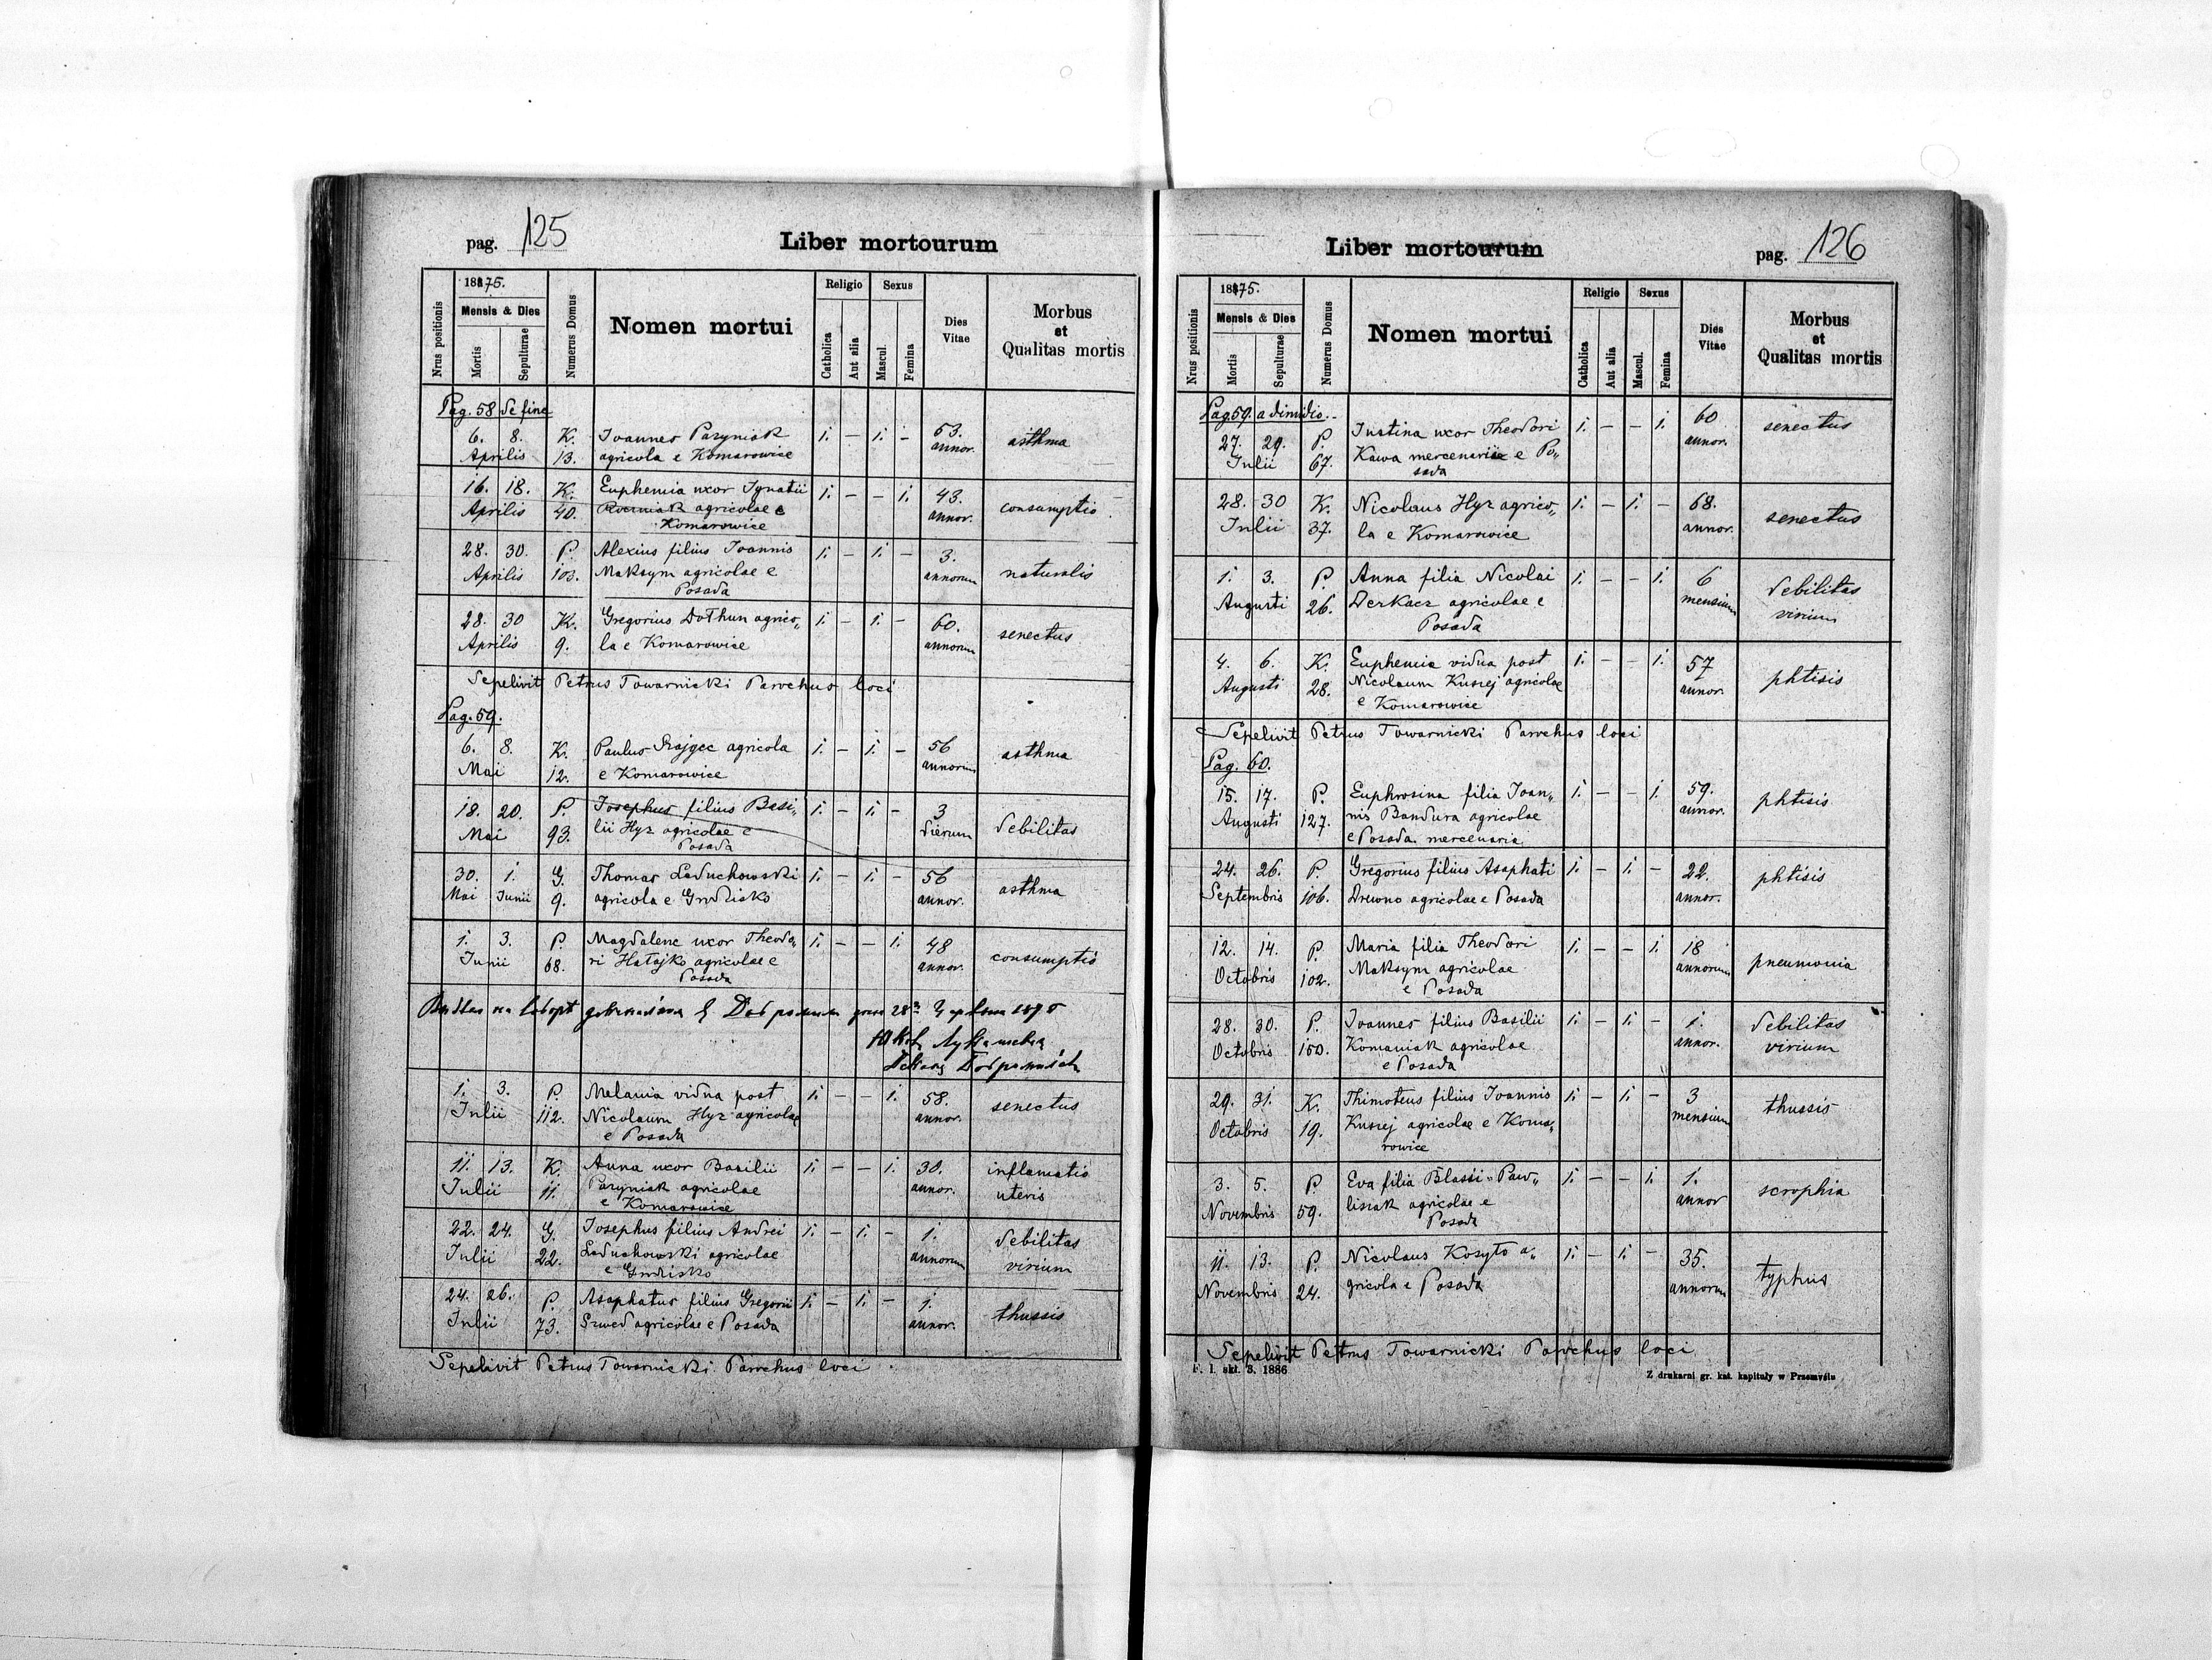 pag. 125
Liber mortourum
1875.
Mensis & Dies
Nrus positionis
Mortis
Sepulturae
Numerus Domus
Nomen mortui
Religio
Catholica
Aut alia
Sexus
Mascul.
Femina
Dies
Vitae
Morbus
et
Qualitas mortis
Pag. 58 de fine
6. 8. K. Ioannes Paryniak 1. – 1. – 53. asthma
Aprilis 13. agricola e Komarowice annor.
16. 18. K. Euphemia uxor Ignatii 1. – – 1. 43. consumptio
Aprilis 40. agricolae e annor.
Komarowice
28. 30. P. Alexius filius Ioannis 1. – 1. – 3. naturalis
Aprilis 103. Maksym agricolae e annorum
Posada
28. 30 K. Gregorius Dothun agrico„ 1. – 1. – 60. senectus
Aprilis 9. la e Komarowice annorum
Sepelivit Petrus Towarnicki Parochus loci
Pag. 59.
6. 8. K. Paulus agricola 1. – 1. – 56 asthma
Mai 12. e Komarowice annorum
18. 20. P. Iosephus filius Basi„ 1. – 1. – 3 debilitas
Mai 93. lii Hyz agricolae e dierum
Posada
30. 1. G. Thomas Laduchowski 1. – 1. – 56 asthma
Mai Iunii 9. agricola e Grodisko annor.
1. 3. P. Magdalene uxor Theodo„ 1. – – 1. 48 consumptio
Iunii 68. ri Hatajko agricolae e annor.
Posada
1. 3. P. Melania vidua post 1. – – 1. 58. senectus
Iulii 112. Nicolaum Hyz agricolae annor.
e Posada
11. 13. K. Anna uxor Basilii 1. – – 1. 30. inflamatio
Iulii 11. Paryniak agricolae annor. uteris
e Komarowice
22. 24. G. Iosephus filius Andrei 1. – 1. – 1. debilitas
Iulii 22. Laduchowski agricolae annorum virium
e Grodisko
24. 26. P. Asaphatus filius Gregorii 1. – 1. – 1. thussis
Iulii 73. Szwed agricolae e Posada annor.
Sepelivit Petrus Towarnicki Parochus loci
Liber mortourum
pag. 126
1875.
Mensis & Dies
Nrus positionis
Mortis
Sepulturae
Numerus Domus
Nomen mortui
Religio
Catholica
Aut alia
Sexus
Mascul.
Femina
Dies
Vitae
Morbus
et
Qualitas mortis
Pag 59. a dimidio.
27. 29. P. Iustina uxor Theodori 1. – – 1. 60 senectus
Iulii 67. Kawa mercenariae e Po„ annor.
sada
28. 30 K. Nicolaus Hyz agrico„ 1. – 1. – 68. senectus
Iulii 37. la e Komarowice annor.
1. 3. P. Anna filia Nicolai 1. – – 1. 6 debilitas
Augusti 26. Derkacz agricolae e mensium virium
Posada
4. 6. K. Euphemia vidua post 1. – – 1. 57 phtisis
Augusti 28. Nicolaum Kusiej agricolae annor.
e Komarowice
Sepelivit Petrus Towarnicki Parochus loci
Pag. 60.
15. 17. P. Euphrosina filia Ioan„ 1. – – 1. 59. phtisis
Augusti 127. nis Bandura agricolae annor.
e Posada mercenaria
24. 26. P. Gregorius filius Asaphati 1. – 1. – 22. phtisis
Septembris 106. Drewno agricolae e Posada annor.
12. 14. P. Maria filia Theodori 1. – – 1. 18 pneumonia
Octobris 102. Maksym agricolae annorum
e Posada
28. 30. P. Ioannes filius Basilii 1. – 1. – 1. debilitas
Octobris 150. Komaniak agricolae annor. virium
e Posada
29. 31. K. Thimoteus filius Ioannis 1. – 1. – 3 thussis
Octobris 19. Kusiej agricolae e Koma„ mensium
rowice
3. 5. P. Eva filia Blassii Paw„ 1. – – 1. 1. scrophia
Novembris 59. lisiak agricolae e annor
Posada
11. 13. P. Nicolaus Kosyto a„ 1. – 1. – 35. typhus
Novembris 24. gricola e Posada annorum
Sepelivit Petrus Towarnicki Parochus loci
F. 1. skt. 3. 1886
Z drukarni gr. kat. kapituły w Przemyślu